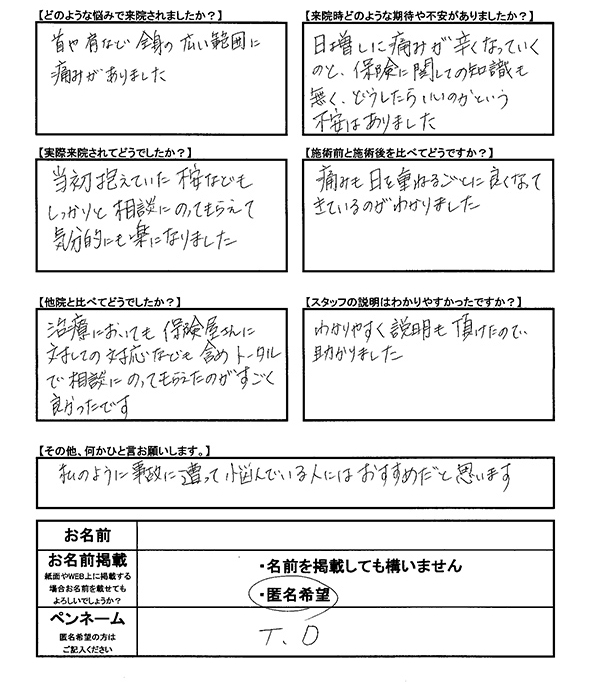 【どのような悩みで来院されましたか？】
首や肩など全身の広い範囲に
痛みがありました
【来院時どのような期待や不安がありましたか？】
日増しに痛みが辛くなっていく
のと、保険に関しての知識も
無く、どうしたらいいのかという
不安はありました
【実際来院されてどうでしたか？】
当初抱えていた不安なども
しっかりと相談にのってもらえて
気分的にも楽になりました
【施術前と施術後を比べてどうですか？】
痛みも日を重ねるごとに良くなって
きているのがわかりました
【他院と比べてどうでしたか？】
治療においても保険屋さんに
対しての対応なども含めトータル
で相談にのってもらえたのがすごく
良かったです
【スタッフの説明はわかりやすかったですか？】
わかりやすく説明も頂けたので、
助かりました
【その他、何かひと言お願いします。】
私のように事故に遭って悩んでいる人にはおすすめだと思います
お名前
お名前掲載
紙面やWEB上に掲載する
場合お名前を載せても
よろしいでしょうか？
・名前を掲載しても構いません
・匿名希望
ペンネーム
匿名希望の方は
ご記入ください
T.O